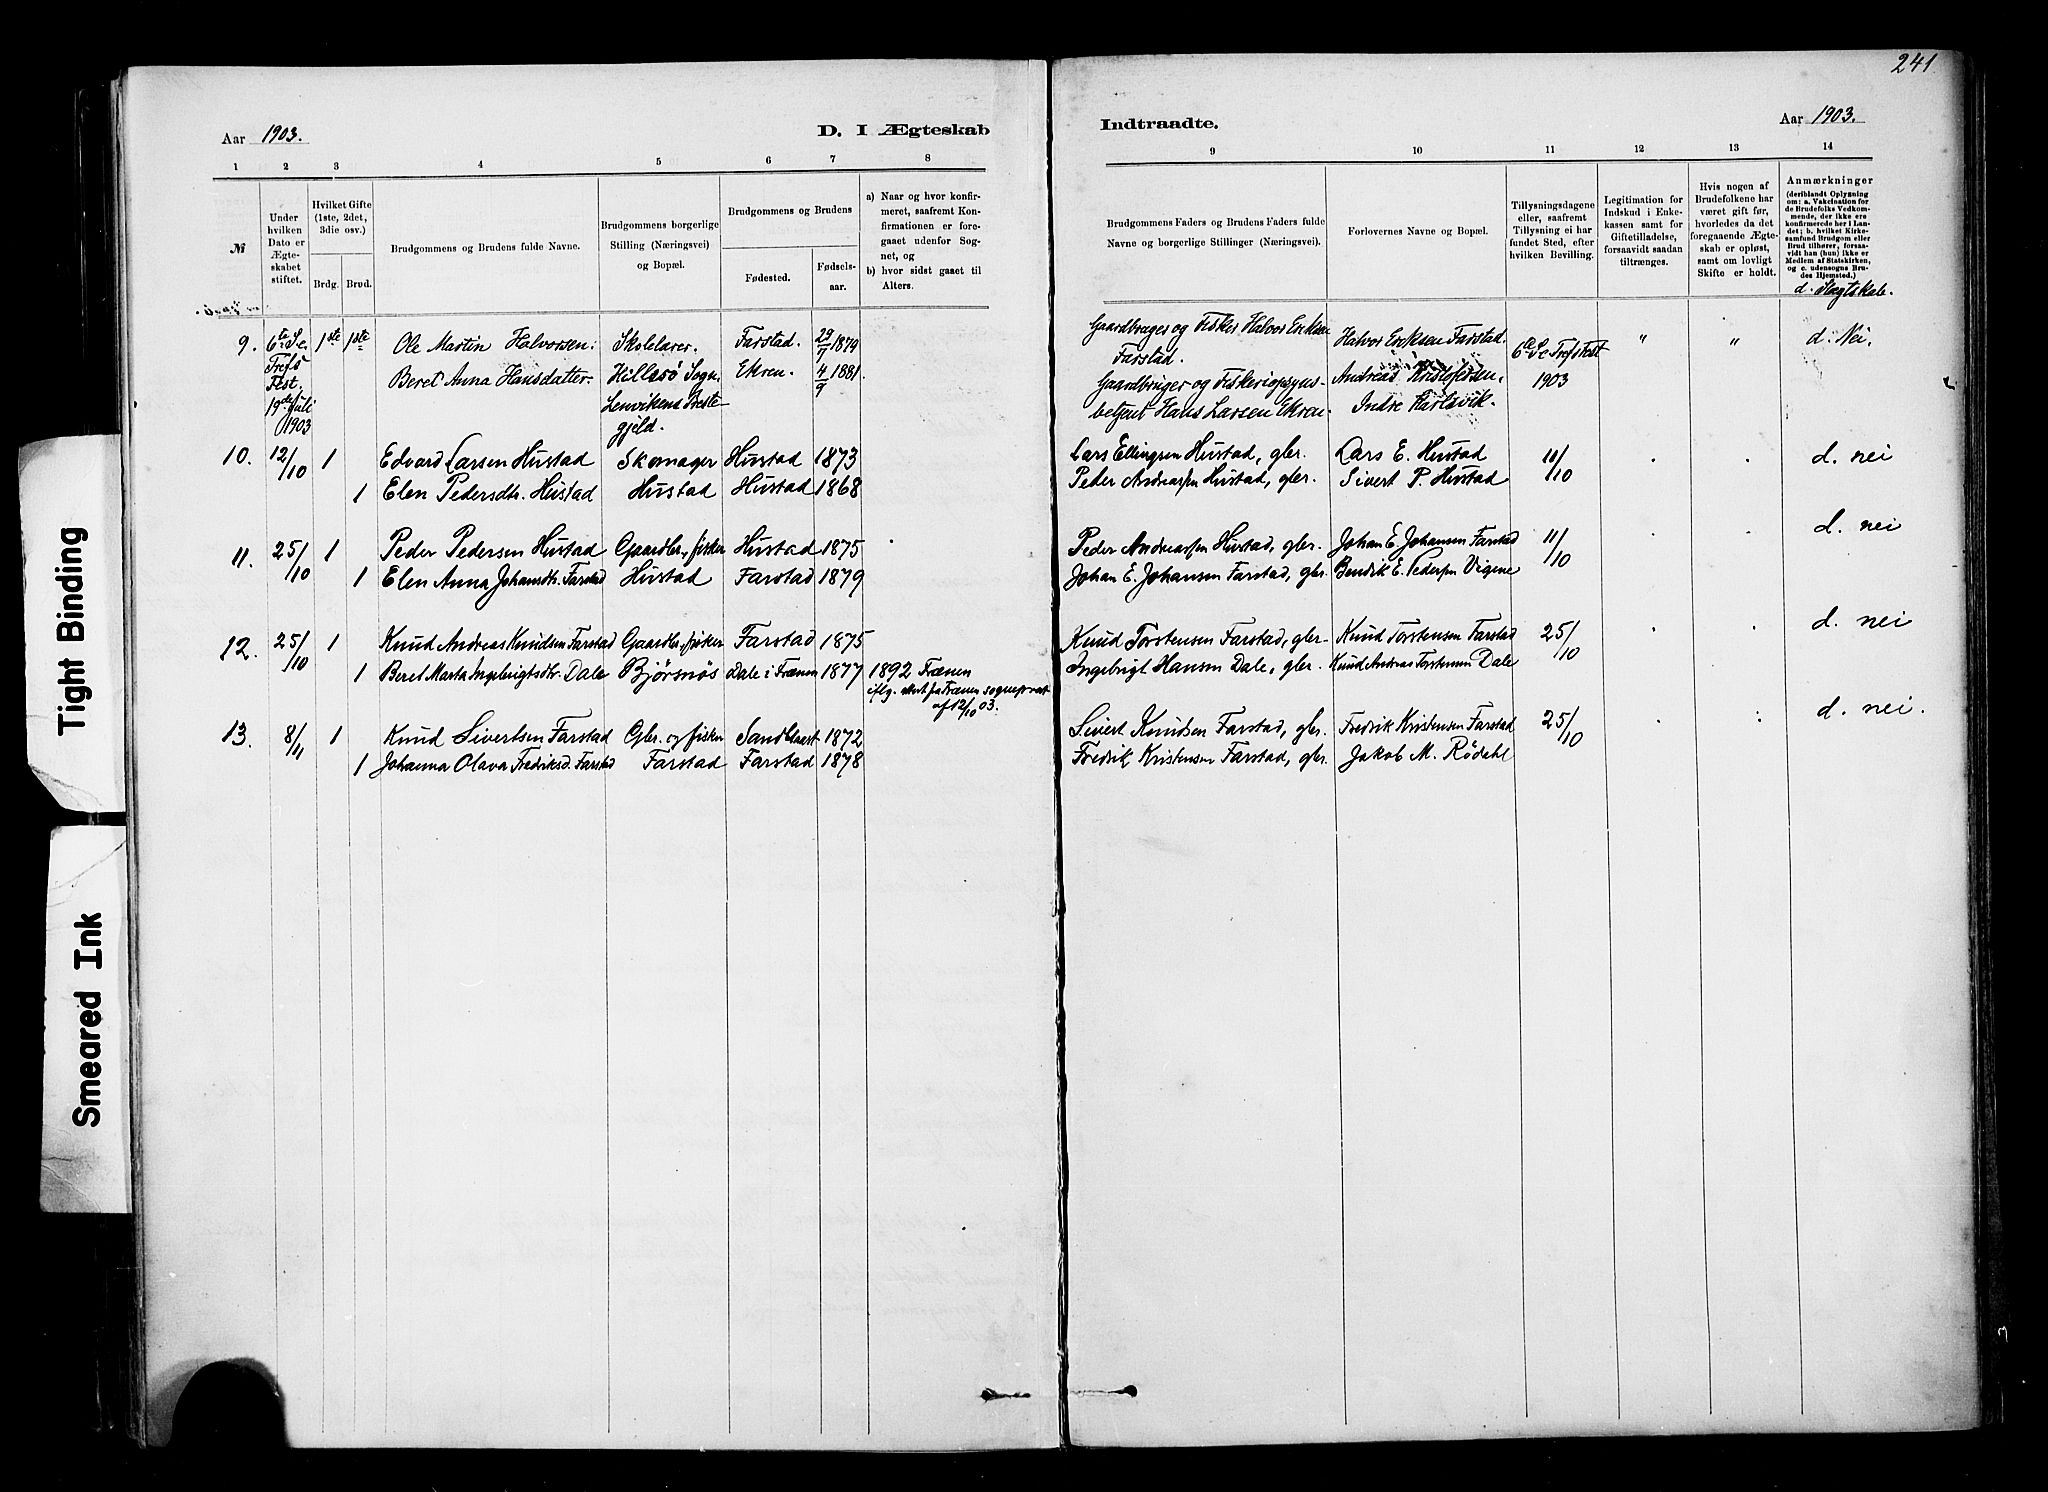 241
Aar 1903.
D. I Ægteskab
Indtraadte.
Aar 1903.
1 2 3 4 5 6 7 8
9 10 11 12 13 14
№
Under
hvilken
Dato er
Ægte-
skabet
stiftet.
Hvilket Gifte
(1ste, 2det,
3die osv.)
Brdg. Brud.
Brudgommens og Brudens fulde Navne.
Brudgommens borgerlige
Stilling (Næringsvei)
og Bopæl.
Brudgommens og Brudens
Fødested.
Fødsels-
aar.
a) Naar og hvor konfir-
meret, saafremt Kon-
firmationen er fore-
gaaet udenfor Sog-
net, og
b) hvor sidst gaaet til
Alters.
Brudgommens Faders og Brudens Faders fulde
Navne og borgerlige Stillinger (Næringsvei).
Forlovernes Navne og Bopæl.
Tillysningsdagene
eller, saafremt
Tillysning ei har
fundet Sted, efter
hvilken Bevilling.
Legitimation for
Indskud i Enke-
kassen samt for
Giftetilladelse,
forsaavidt saadan
tiltrænges.
Hvis nogen af
Brudefolkene har
været gift før,
hvorledes da det
foregaaende Ægte-
skab er opløst,
samt om lovligt
Skifte er holdt.
Anmærkninger
(deriblandt Oplysning
om: a. Vakcination for
de Brudefolks Vedkom-
mende, der ikke ere
konfirmerede her i Lan-
det; b. hvilket Kirke-
samfund Brudgom eller
Brud tilhører, forsaa-
vidt han (hun) ikke er
Medlem af Statskirken,
og c. udensogns Bru-
des Hjemsted.)
d. Slægtskab.
9. 6te S. e. 1ste 1ste Ole Martin Halvorsen. Skolelærer. Farstad. 29/7 1879
Trefs
Fest. Beret Anna Hansdatter. Hillesö Sogn, Ekren. 4/9 1881.
19de Juli Lenvikens Præste-
1903 gjeld.
Gaardbruger og Fisker Halvor Eriksen Halvor Eriksen Farstad. 6te S. e. Trefs Fest " " d: Nei.
Farstad.
Gaardbruger og Fiskeriopsyns- Andreas Kristofersen, 1903
betjent Hans Larsen Ekren. Indre Harlsvik.
10. 12/10 1 Edvard Larsen Hustad Skomager Hustad 1873
1 Elen Pedersdtr. Hustad Hustad Hustad 1868
Lars Ellingsen Hustad, gbr. Lars E. Hustad 11/10 d. nei
Peder Andreassen Hustad, gbr. Sivert P. Hustad
11. 25/10 1 Peder Pedersen Hustad Gaardbr., fisker Hustad 1875
1 Elen Anna Johansdtr. Farstad Hustad Farstad 1879
Peder Andreassen Hustad, gbr. Johan E. Johansen Farstad 11/10 d. nei
Johan E. Johansen Farstad, gbr. Bendik E. Pedersen Vigene
12. 25/10 1 Knud Andreas Knudsen Farstad Gaardbr., fisker Farstad 1875
1 Beret Marta Ingebrigtsdtr. Dale Björsnös Dale i Frænen 1877 1892 Frænen
iflg. attest fra Frænen sogneprest
af 12/10 03.
Knud Torstensen Farstad, gbr. Knud Torstensen Farstad 25/10 d. nei
Ingebrigt Hansen Dale, gbr. Knud Andreas Torstensen Dale
13. 8/11 1 Knud Sivertsen Farstad Gbr. og fisker Sandblaast 1872
1 Johanna Olava Fredriksd. Farstad Farstad Farstad 1878
Sivert Knudsen Farstad, gbr. Fredrik Kristensen Farstad 25/10 d. nei.
Fredrik Kristensen Farstad, gbr. Jakob M. Rödahl
Tight Binding
Smeared Ink